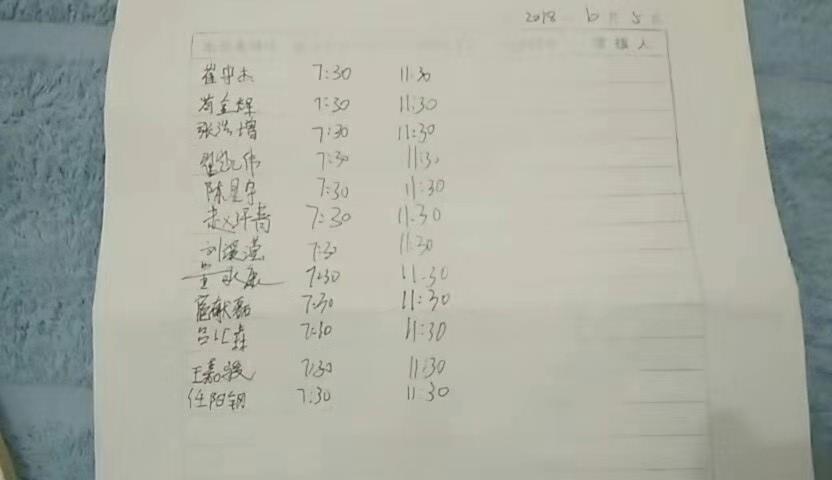 2018 6 月 5
崔守杰 7:30 11:30
苟金辉 7:30 11:30
张浩增 7:30 11:30
翟凯伟 7:30 11:30
陈星宇 7:30 11:30
7:30 11:30
刘溪滢 7:30 11:30
董永康 7:30 11:30
7:30 11:30
吕汇森 7:30 11:30
王嘉骏 7:30 11:30
任阳钢 7:30 11:30